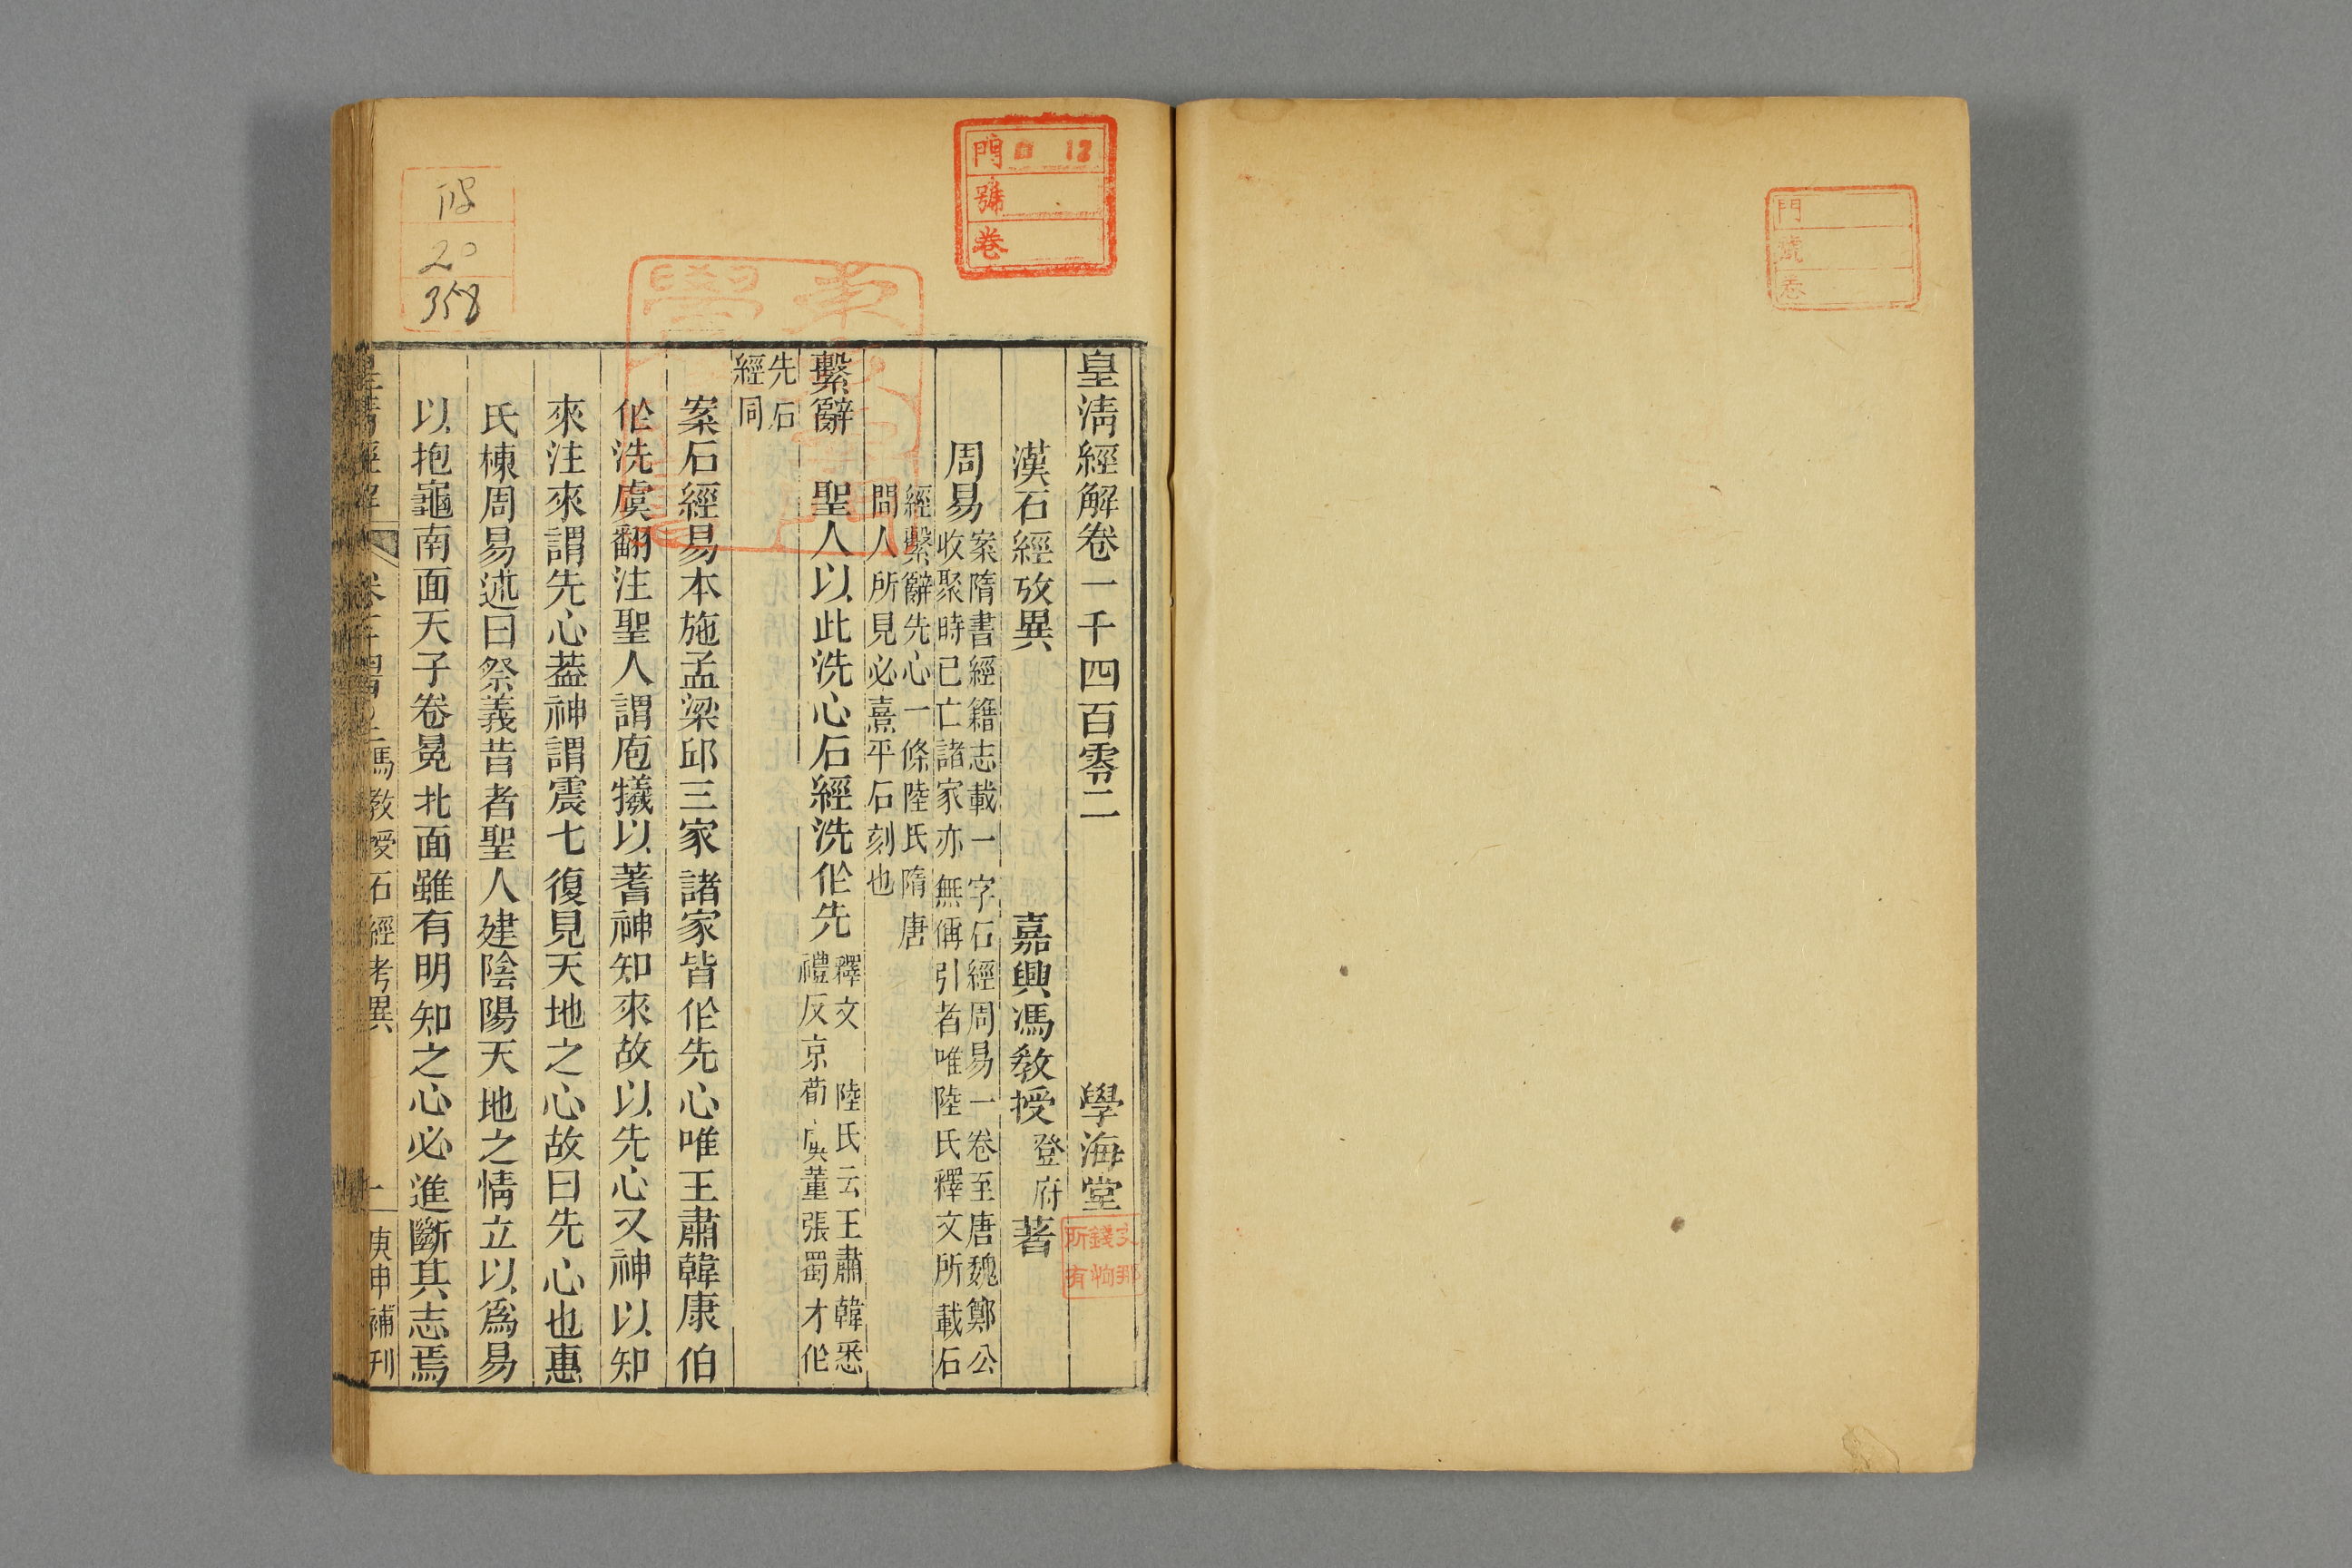 皇淸經解卷一千四百零二 學海堂
漢石經攷異 嘉興馮敎授登府著
周易案隋書經籍志載一字石經周易一卷至唐魏鄭公
收聚時已亡諸家亦無偁引者唯陸氏釋文所載石
經繫辭先心一條陸氏隋唐
間人所見必熹平石刻也
繫辭 聖人以此洗心石經洗作先釋文 陸氏云王肅韓悉
禮反京荀虞董張蜀才作
先石
經同
案石經易本施孟梁邱三家諸家皆作先心唯王肅韓康伯
作洗虞翻注聖人謂庖犧以蓍神知來故以先心又神以知
來注來謂先心葢神謂震七復見天地之心故曰先心也惠
氏棟周易述曰祭義昔者聖人建陰陽天地之情立以爲易
以抱龜南面天子卷冕北面雖有明知之心必進斷其志焉
皇清經解 卷千四百二馮敎授石經考異 一 庚申補刊
門 口 12
號
卷
20
358
所有
門
號
卷